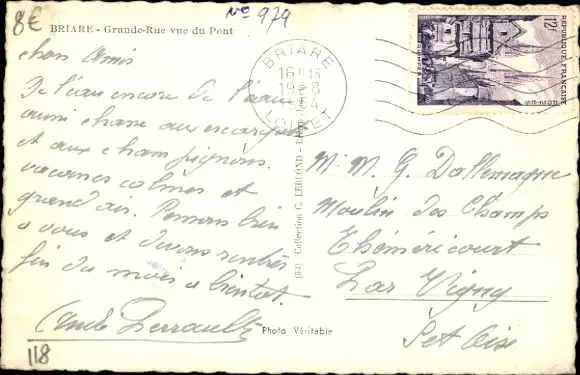 8€
No 979
BRIARE - Grande-Rue vue du Pont
chers Amis
De l'eau encore de l'eau
aussi chasse aux escargots
et aux champignons.
vacances calmes et
grand air. Pensons bien
à vous et devons rentrer
fin du mois a bientot.
Perrault
118
Photo Véritable
(53) Collection C. LEBLOND
BRIARE
16 H 15
LOIRET
12F
REPUBLIQUE FRANÇAISE
QUIMPER
M. M. G. Dallemagne
Moulin des Champs
Théméricourt
Par Vigny
S et Oise